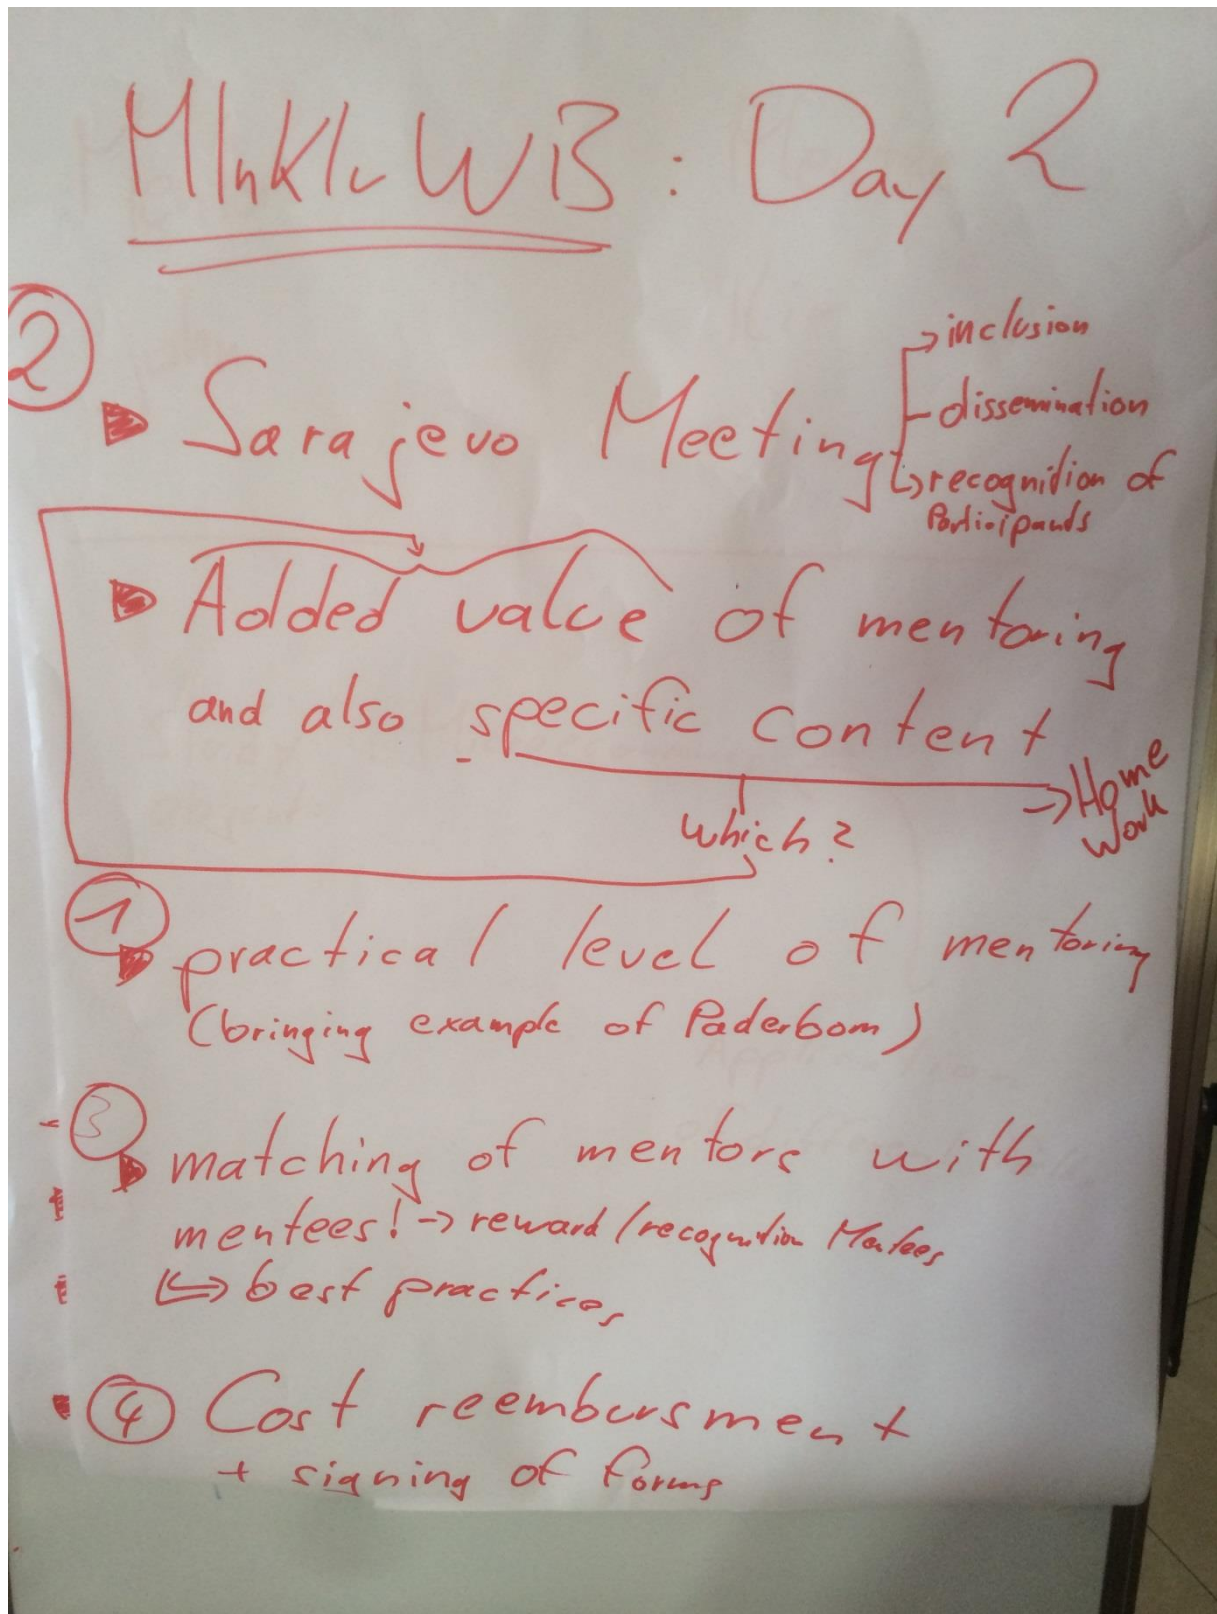 MInKluWB: Day 2
② Sarajevo Meeting
→ inclusion
- dissemination
↳ recognition of
Participants
Added value of mentoring
and also specific content
→ Home
Work
which?
① practical level of mentoring
(bringing example of Paderborn)
③ matching of mentors with
mentees! → reward / recognition Mentees
↳ best practices
④ Cost reembursment
+ signing of forms